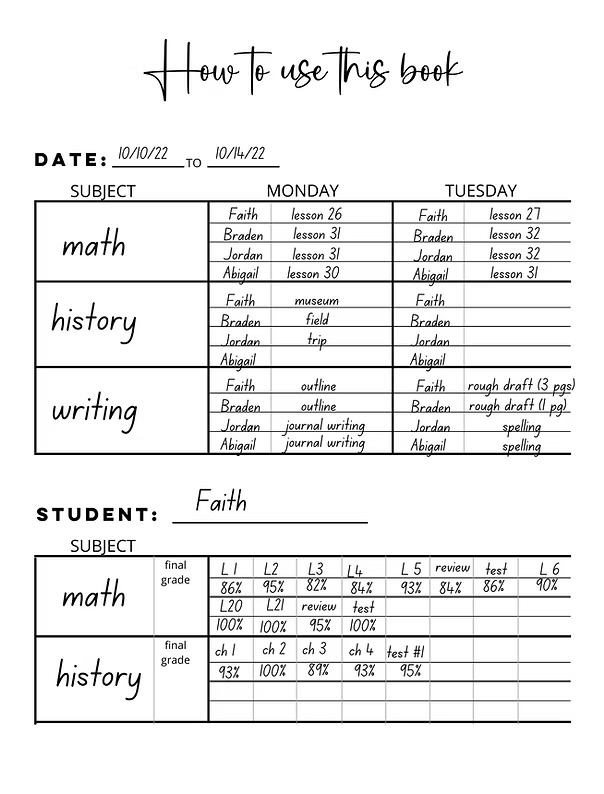 How to use this book
DATE: 10/10/22 TO 10/14/22
SUBJECT MONDAY TUESDAY
math
Faith lesson 26 Faith lesson 27
Braden lesson 31 Braden lesson 32
Jordan lesson 31 Jordan lesson 32
Abigail lesson 30 Abigail lesson 31
history
Faith museum Faith
Braden field Braden
Jordan trip Jordan
Abigail Abigail
writing
Faith outline Faith rough draft (3 pgs)
Braden outline Braden rough draft (1 pg)
Jordan journal writing Jordan spelling
Abigail journal writing Abigail spelling
STUDENT: Faith
SUBJECT
math
final
grade
L 1 L2 L3 L4 L 5 review test L 6
86% 95% 82% 84% 93% 84% 86% 90%
L20 L21 review test
100% 100% 95% 100%
history
final
grade
ch 1 ch 2 ch 3 ch 4 test #1
93% 100% 89% 93% 95%